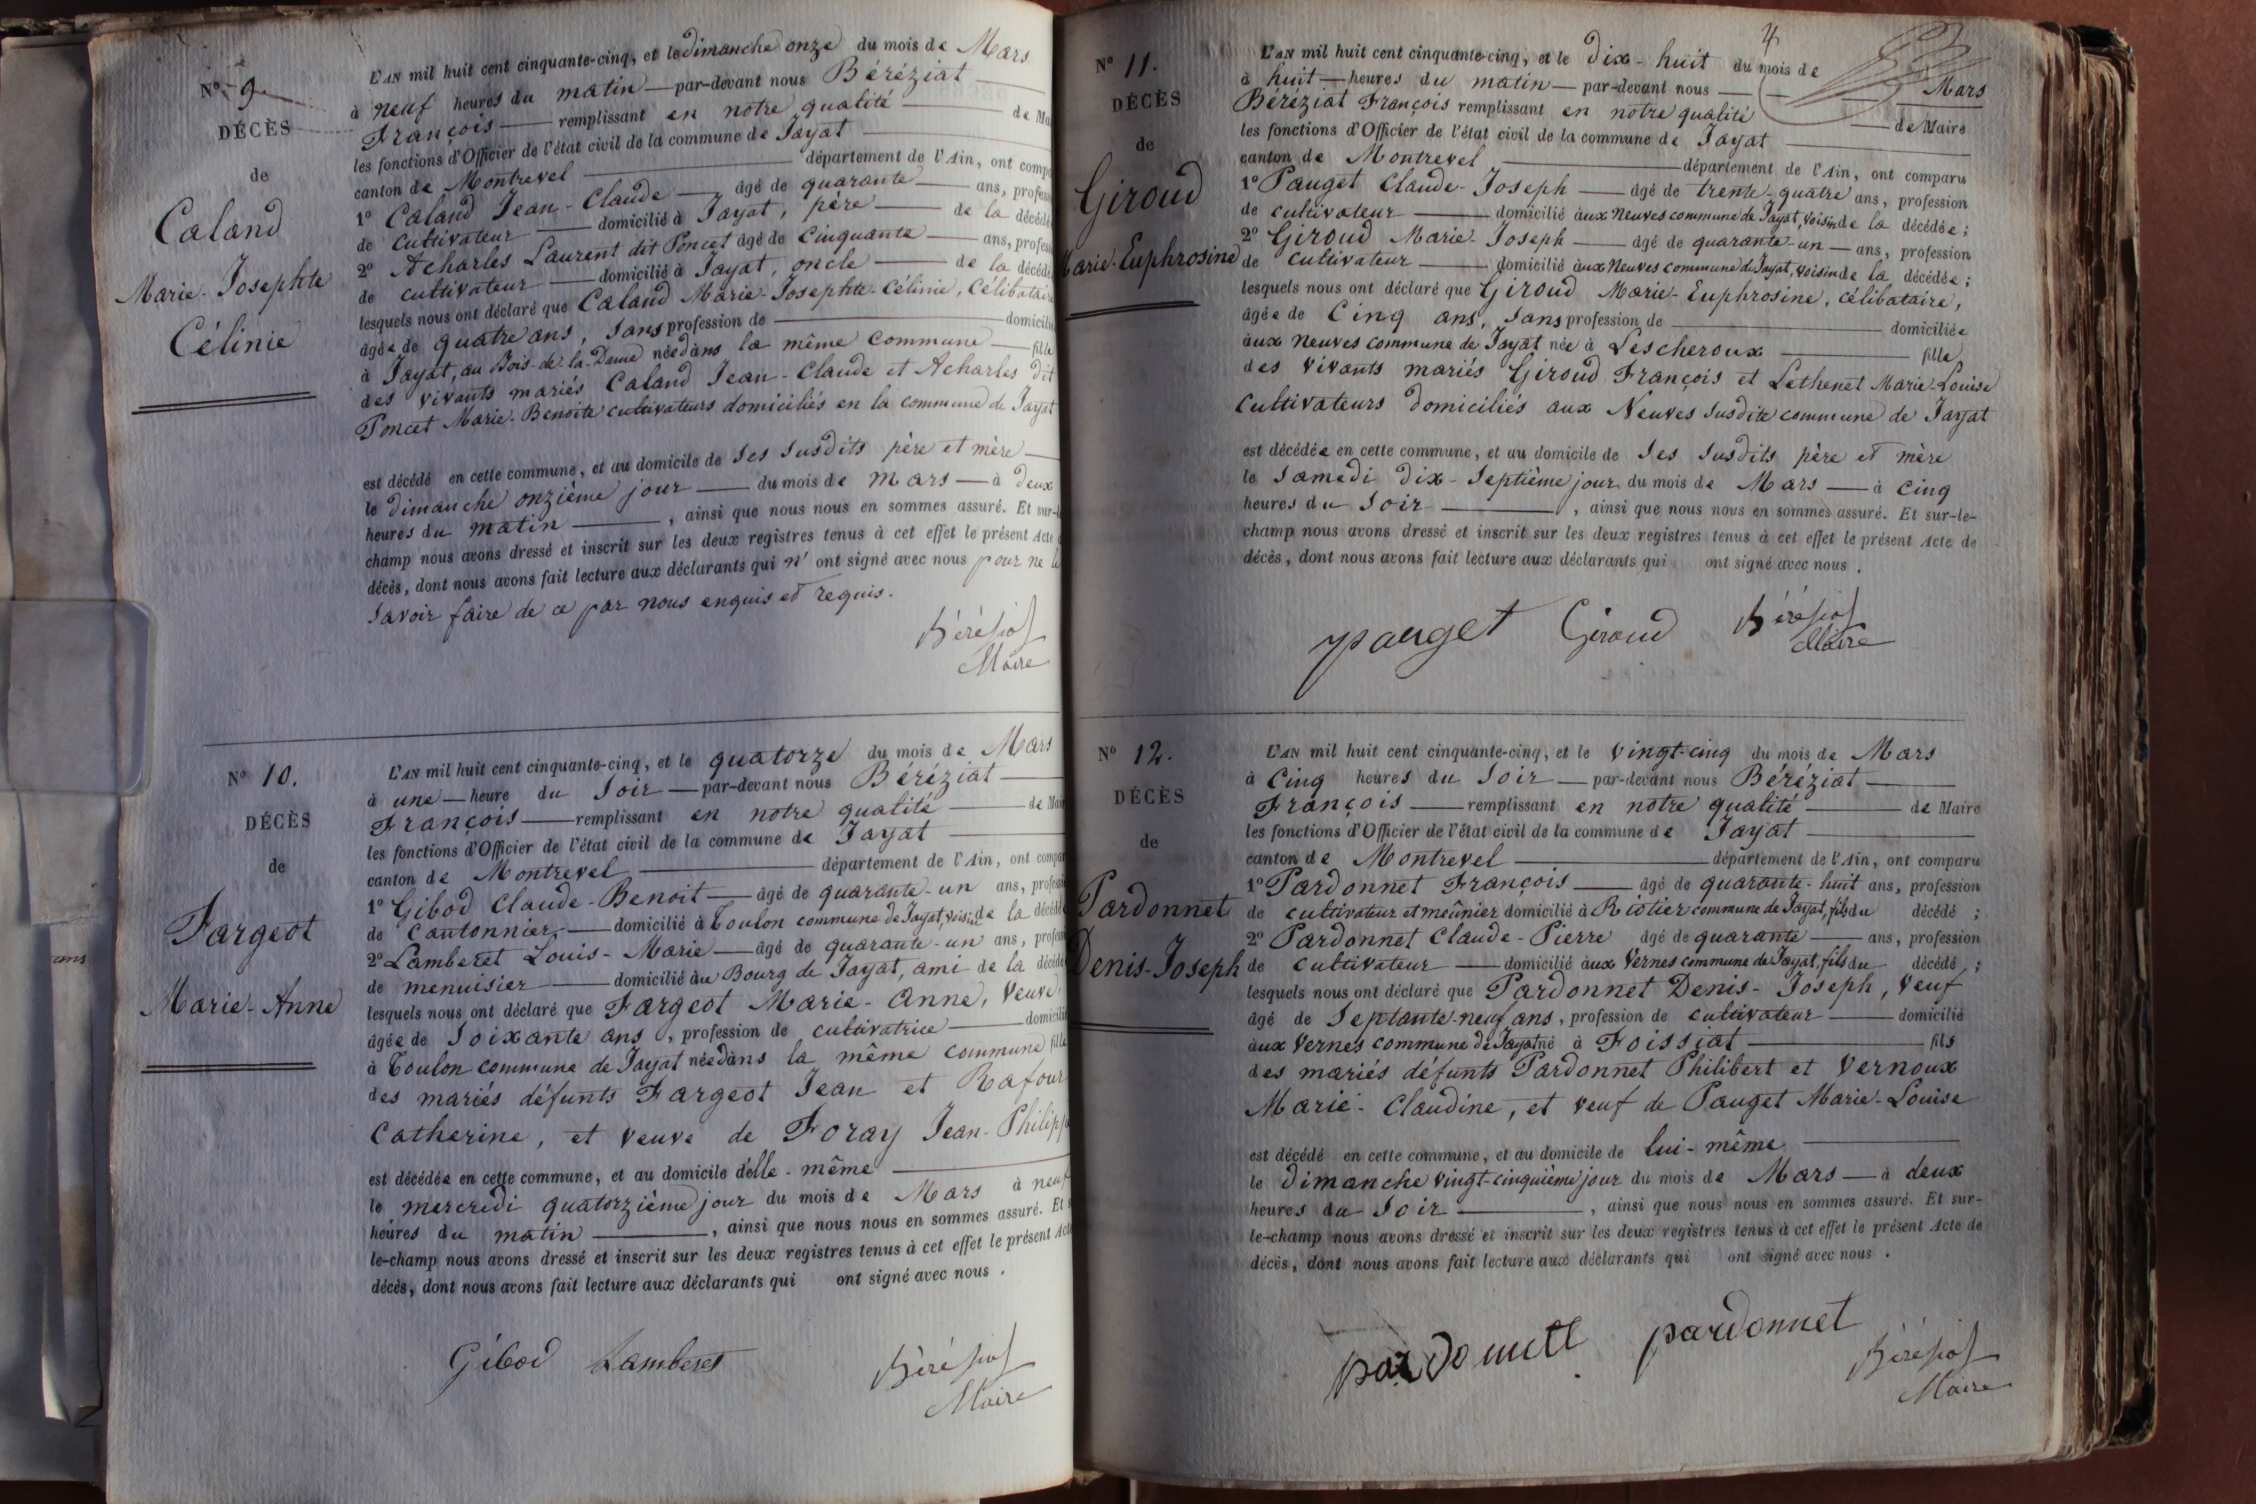 Nº 9
DÉCÈS
de
Caland
Marie-Josephte
Célinie
L'AN mil huit cent cinquante-cinq, et le dimanche onze du mois de Mars
à neuf heures du matin par-devant nous Béréziat
François remplissant en notre qualité de Ma
les fonctions d'Officier de l'état civil de la commune de Jayat
canton de Montrevel département de l'Ain, ont compa
1º Caland Jean-Claude âgé de quarante ans, profess
de cultivateur domicilié à Jayat, père de la décédé
2º Acharles Laurent dit Poncet âgé de cinquante ans, profess
de cultivateur domicilié à Jayat, oncle de la décédé
lesquels nous ont déclaré que Caland Marie-Josephte-Célinie, célibataire
âgée de quatre ans, sans profession de domicilié
à Jayat, au Bois-de-la-Dame née dans la même commune fille
des vivants mariés Caland Jean-Claude et Acharles dit
Poncet Marie-Benoite cultivateurs domiciliés en la commune de Jayat
est décédé en cette commune, et au domicile de ses susdits père et mère
le dimanche onzième jour du mois de mars à deux
heures du matin, ainsi que nous nous en sommes assuré. Et sur-l
champ nous avons dressé et inscrit sur les deux registres tenus à cet effet le présent Acte
décès, dont nous avons fait lecture aux déclarants qui n'ont signé avec nous pour ne le
savoir faire de ce par nous enquis et requis.
Béréziat
Maire
Nº 10.
DÉCÈS
de
Fargeot
Marie-Anne
L'AN mil huit cent cinquante-cinq, et le quatorze du mois de Mars
à une heure du soir par-devant nous Béréziat
François remplissant en notre qualité de Mair
les fonctions d'Officier de l'état civil de la commune de Jayat
canton de Montrevel département de l'Ain, ont compar
1º Gibod Claude-Benoit âgé de quarante-un ans, profess
de cantonnier domicilié à Toulon commune de Jayat, voisin de la décédé
2º Lamberet Louis-Marie âgé de quarante-un ans, profess
de menuisier domicilié au Bourg de Jayat, ami de la décédé
lesquels nous ont déclaré que Fargeot Marie-Anne, veuve
âgée de soixante ans, profession de cultivatrice domicilié
à Toulon commune de Jayat née dans la même commune fille
des mariés défunts Fargeot Jean et Rafour
Catherine, et veuve de Foray Jean-Philippe
est décédée en cette commune, et au domicile d'elle-même
le mercredi quatorzième jour du mois de Mars à neuf
heures du matin, ainsi que nous nous en sommes assuré. Et s
le-champ nous avons dressé et inscrit sur les deux registres tenus à cet effet le présent Acte
décès, dont nous avons fait lecture aux déclarants qui ont signé avec nous.
Gibod Lamberet Béréziat
Maire
4
Nº 11.
DÉCÈS
de
Giroud
Marie-Euphrosine
L'AN mil huit cent cinquante-cinq, et le dix-huit du mois de Mars
à huit heures du matin par-devant nous
Béréziat François remplissant en notre qualité de Maire
les fonctions d'Officier de l'état civil de la commune de Jayat
canton de Montrevel département de l'Ain, ont comparu
1º Pauget Claude-Joseph âgé de trente-quatre ans, profession
de cultivateur domicilié aux Neuves commune de Jayat, voisin de la décédée;
2º Giroud Marie-Joseph âgé de quarante-un ans, profession
de cultivateur domicilié aux Neuves commune de Jayat, voisin de la décédée;
lesquels nous ont déclaré que Giroud Marie-Euphrosine, célibataire,
âgée de cinq ans, sans profession de domiciliée
aux Neuves commune de Jayat née à Lescheroux fille
des vivants mariés Giroud François et Lethenet Marie-Louise
cultivateurs domiciliés aux Neuves susdite commune de Jayat
est décédée en cette commune, et au domicile de ses susdits père et mère
le samedi dix-septième jour du mois de Mars à cinq
heures du soir, ainsi que nous nous en sommes assuré. Et sur-le-
champ nous avons dressé et inscrit sur les deux registres tenus à cet effet le présent Acte de
décès, dont nous avons fait lecture aux déclarants qui ont signé avec nous.
pauget Giroud Béréziat
Maire
Nº 12.
DÉCÈS
de
Pardonnet
Denis-Joseph
L'AN mil huit cent cinquante-cinq, et le vingt-cinq du mois de Mars
à cinq heures du soir par-devant nous Béréziat
François remplissant en notre qualité de Maire
les fonctions d'Officier de l'état civil de la commune de Jayat
canton de Montrevel département de l'Ain, ont comparu
1º Pardonnet François âgé de quarante-huit ans, profession
de cultivateur et meûnier domicilié à Riotier commune de Jayat, fils du décédé;
2º Pardonnet Claude-Pierre âgé de quarante ans, profession
de cultivateur domicilié aux Vernes commune de Jayat, fils du décédé;
lesquels nous ont déclaré que Pardonnet Denis-Joseph, veuf
âgé de septante-neuf ans, profession de cultivateur domicilié
aux Vernes commune de Jayat né à Foissiat fils
des mariés défunts Pardonnet Philibert et Vernoux
Marie-Claudine, et veuf de Pauget Marie-Louise
est décédé en cette commune, et au domicile de lui-même
le dimanche vingt-cinquième jour du mois de Mars à deux
heures du soir, ainsi que nous nous en sommes assuré. Et sur-
le-champ nous avons dressé et inscrit sur les deux registres tenus à cet effet le présent Acte de
décès, dont nous avons fait lecture aux déclarants qui ont signé avec nous.
pardonnet pardonnet Béréziat
Maire